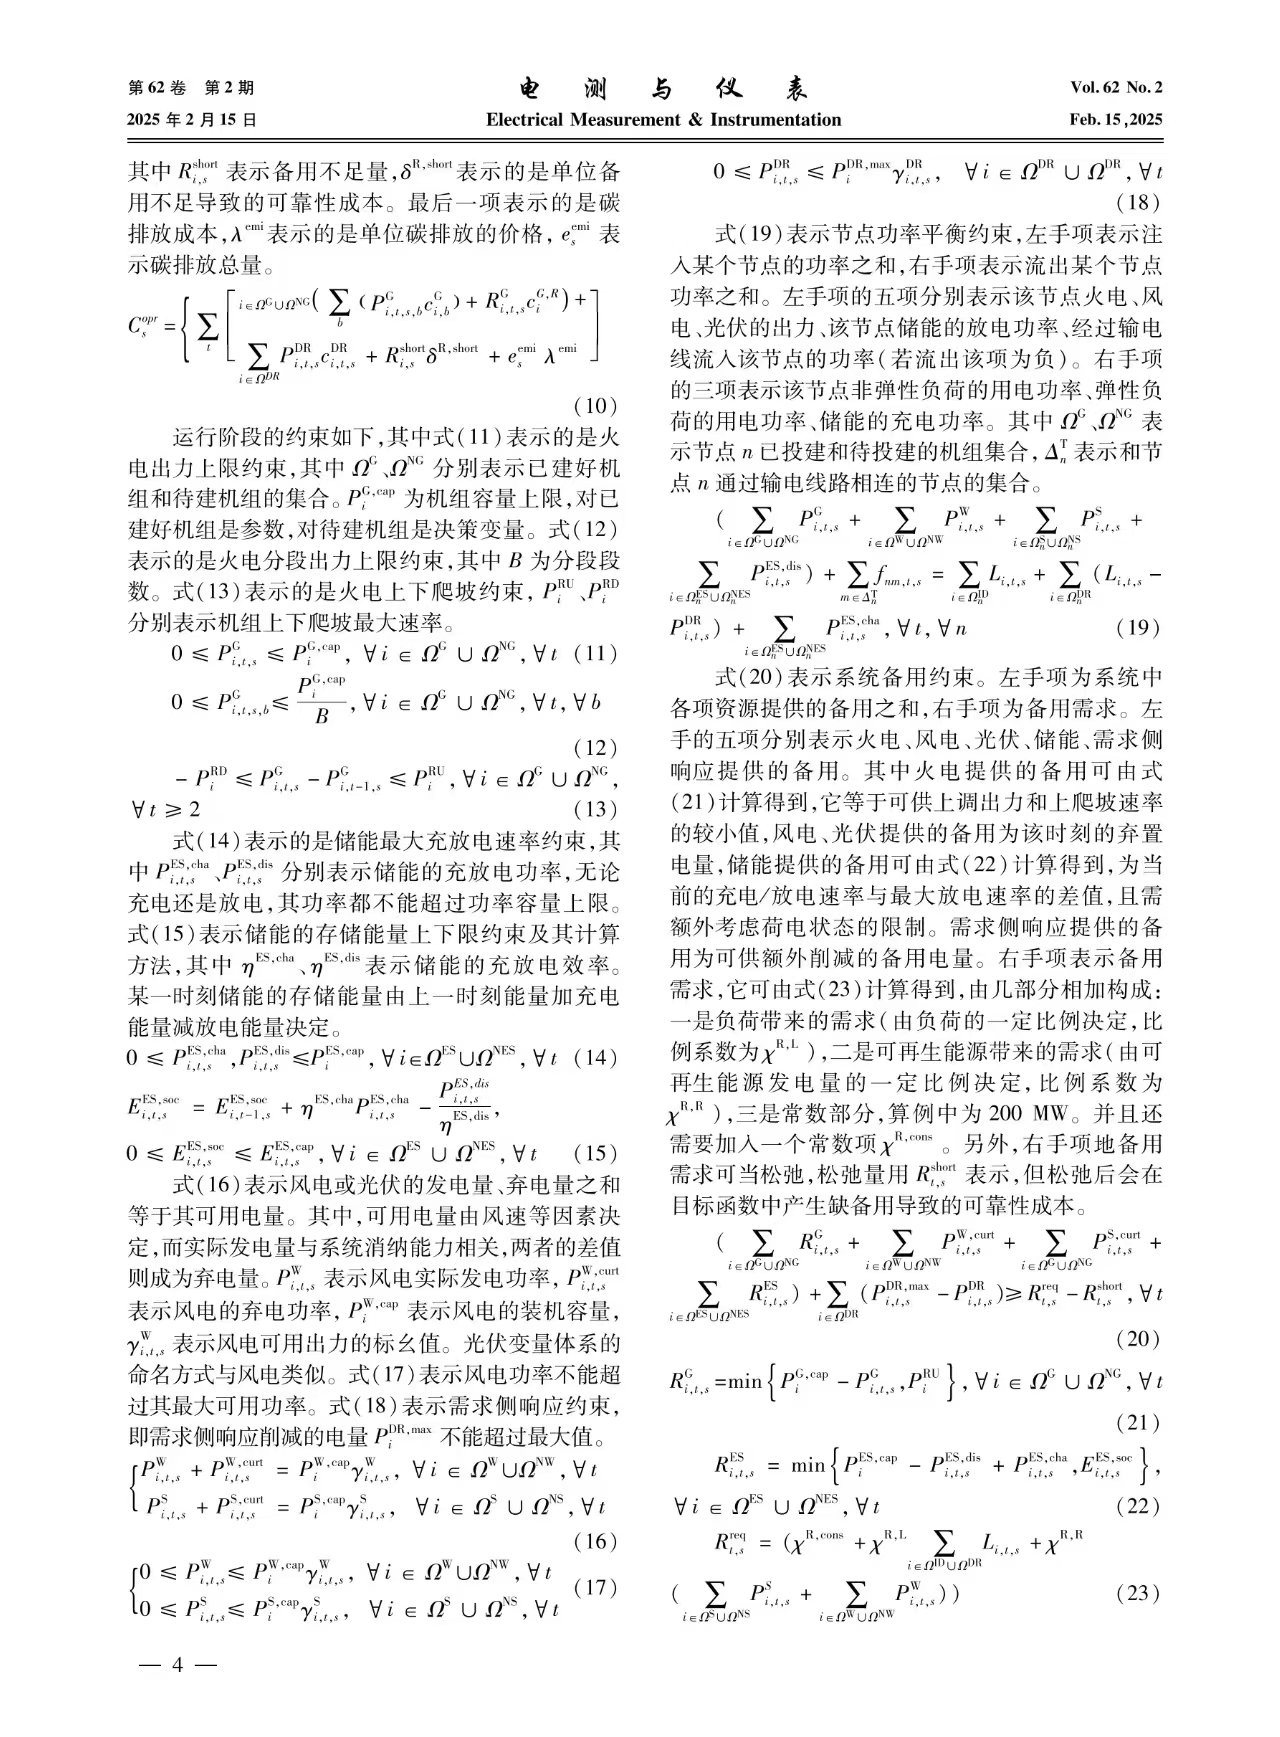 第 62 卷　第 2 期
电　测　与　仪　表
Vol. 62 No. 2
2025 年 2 月 15 日
Electrical Measurement & Instrumentation
Feb. 15, 2025
其中 R_{i,s}^{short} 表示备用不足量,δ^{R,short}表示的是单位备
用不足导致的可靠性成本。最后一项表示的是碳
排放成本,λ^{emi}表示的是单位碳排放的价格, e_s^{emi} 表
示碳排放总量。
C_s^{opr} = { ∑_t [ _{i∈Ω^G∪Ω^{NG}} ( ∑_b ( P_{i,t,s,b}^G c_{i,b}^G ) + R_{i,t,s}^G c_i^{G,R} ) +
∑_{i∈Ω^{DR}} P_{i,t,s}^{DR} c_{i,t,s}^{DR} + R_{i,s}^{short} δ^{R,short} + e_s^{emi} λ^{emi} ]
(10)
运行阶段的约束如下,其中式(11)表示的是火
电出力上限约束,其中 Ω^G、Ω^{NG} 分别表示已建好机
组和待建机组的集合。P_i^{G,cap} 为机组容量上限,对已
建好机组是参数,对待建机组是决策变量。式(12)
表示的是火电分段出力上限约束,其中 B 为分段段
数。式(13)表示的是火电上下爬坡约束, P_i^{RU}、P_i^{RD}
分别表示机组上下爬坡最大速率。
0 ≤ P_{i,t,s}^G ≤ P_i^{G,cap}, ∀i ∈ Ω^G ∪ Ω^{NG}, ∀t (11)
0 ≤ P_{i,t,s,b}^G ≤ P_i^{G,cap} / B, ∀i ∈ Ω^G ∪ Ω^{NG}, ∀t, ∀b
(12)
− P_i^{RD} ≤ P_{i,t,s}^G − P_{i,t−1,s}^G ≤ P_i^{RU}, ∀i ∈ Ω^G ∪ Ω^{NG},
∀t ≥ 2 (13)
式(14)表示的是储能最大充放电速率约束,其
中 P_{i,t,s}^{ES,cha}、P_{i,t,s}^{ES,dis} 分别表示储能的充放电功率,无论
充电还是放电,其功率都不能超过功率容量上限。
式(15)表示储能的存储能量上下限约束及其计算
方法,其中 η^{ES,cha}、η^{ES,dis}表示储能的充放电效率。
某一时刻储能的存储能量由上一时刻能量加充电
能量减放电能量决定。
0 ≤ P_{i,t,s}^{ES,cha}, P_{i,t,s}^{ES,dis} ≤ P_i^{ES,cap}, ∀i∈Ω^{ES}∪Ω^{NES}, ∀t (14)
E_{i,t,s}^{ES,soc} = E_{i,t−1,s}^{ES,soc} + η^{ES,cha} P_{i,t,s}^{ES,cha} − P_{i,t,s}^{ES,dis} / η^{ES,dis},
0 ≤ E_{i,t,s}^{ES,soc} ≤ E_{i,t,s}^{ES,cap}, ∀i ∈ Ω^{ES} ∪ Ω^{NES}, ∀t (15)
式(16)表示风电或光伏的发电量、弃电量之和
等于其可用电量。其中,可用电量由风速等因素决
定,而实际发电量与系统消纳能力相关,两者的差值
则成为弃电量。P_{i,t,s}^W 表示风电实际发电功率, P_{i,t,s}^{W,curt}
表示风电的弃电功率, P_i^{W,cap} 表示风电的装机容量,
γ_{i,t,s}^W 表示风电可用出力的标幺值。光伏变量体系的
命名方式与风电类似。式(17)表示风电功率不能超
过其最大可用功率。式(18)表示需求侧响应约束,
即需求侧响应削减的电量 P_i^{DR,max} 不能超过最大值。
{ P_{i,t,s}^W + P_{i,t,s}^{W,curt} = P_i^{W,cap} γ_{i,t,s}^W, ∀i ∈ Ω^W∪Ω^{NW}, ∀t
P_{i,t,s}^S + P_{i,t,s}^{S,curt} = P_i^{S,cap} γ_{i,t,s}^S, ∀i ∈ Ω^S ∪ Ω^{NS}, ∀t
(16)
{ 0 ≤ P_{i,t,s}^W ≤ P_i^{W,cap} γ_{i,t,s}^W, ∀i ∈ Ω^W∪Ω^{NW}, ∀t
(17)
0 ≤ P_{i,t,s}^S ≤ P_i^{S,cap} γ_{i,t,s}^S, ∀i ∈ Ω^S ∪ Ω^{NS}, ∀t
0 ≤ P_{i,t,s}^{DR} ≤ P_i^{DR,max} γ_{i,t,s}^{DR}, ∀i ∈ Ω^{DR} ∪ Ω^{DR}, ∀t
(18)
式(19)表示节点功率平衡约束,左手项表示注
入某个节点的功率之和,右手项表示流出某个节点
功率之和。左手项的五项分别表示该节点火电、风
电、光伏的出力、该节点储能的放电功率、经过输电
线流入该节点的功率(若流出该项为负)。右手项
的三项表示该节点非弹性负荷的用电功率、弹性负
荷的用电功率、储能的充电功率。其中 Ω^G、Ω^{NG} 表
示节点 n 已投建和待投建的机组集合, Δ_n^T 表示和节
点 n 通过输电线路相连的节点的集合。
( ∑_{i∈Ω^G∪Ω^{NG}} P_{i,t,s}^G + ∑_{i∈Ω^W∪Ω^{NW}} P_{i,t,s}^W + ∑_{i∈Ω_n^S∪Ω_n^{NS}} P_{i,t,s}^S +
∑_{i∈Ω_n^{ES}∪Ω_n^{NES}} P_{i,t,s}^{ES,dis} ) + ∑_{m∈Δ_n^T} f_{nm,t,s} = ∑_{i∈Ω_n^{ID}} L_{i,t,s} + ∑_{i∈Ω_n^{DR}} (L_{i,t,s} −
P_{i,t,s}^{DR}) + ∑_{i∈Ω_n^{ES}∪Ω_n^{NES}} P_{i,t,s}^{ES,cha}, ∀t, ∀n (19)
式(20)表示系统备用约束。左手项为系统中
各项资源提供的备用之和,右手项为备用需求。左
手的五项分别表示火电、风电、光伏、储能、需求侧
响应提供的备用。其中火电提供的备用可由式
(21)计算得到,它等于可供上调出力和上爬坡速率
的较小值,风电、光伏提供的备用为该时刻的弃置
电量,储能提供的备用可由式(22)计算得到,为当
前的充电/放电速率与最大放电速率的差值,且需
额外考虑荷电状态的限制。需求侧响应提供的备
用为可供额外削减的备用电量。右手项表示备用
需求,它可由式(23)计算得到,由几部分相加构成:
一是负荷带来的需求(由负荷的一定比例决定,比
例系数为χ^{R,L}),二是可再生能源带来的需求(由可
再生能源发电量的一定比例决定,比例系数为
χ^{R,R}),三是常数部分,算例中为 200 MW。并且还
需要加入一个常数项χ^{R,cons}。另外,右手项地备用
需求可当松弛,松弛量用 R_{t,s}^{short} 表示,但松弛后会在
目标函数中产生缺备用导致的可靠性成本。
( ∑_{i∈Ω^G∪Ω^{NG}} R_{i,t,s}^G + ∑_{i∈Ω^W∪Ω^{NW}} P_{i,t,s}^{W,curt} + ∑_{i∈Ω^G∪Ω^{NG}} P_{i,t,s}^{S,curt} +
∑_{i∈Ω^{ES}∪Ω^{NES}} R_{i,t,s}^{ES} ) + ∑_{i∈Ω^{DR}} (P_{i,t,s}^{DR,max} − P_{i,t,s}^{DR}) ≥ R_{t,s}^{req} − R_{t,s}^{short}, ∀t
(20)
R_{i,t,s}^G = min { P_i^{G,cap} − P_{i,t,s}^G, P_i^{RU} }, ∀i ∈ Ω^G ∪ Ω^{NG}, ∀t
(21)
R_{i,t,s}^{ES} = min { P_i^{ES,cap} − P_{i,t,s}^{ES,dis} + P_{i,t,s}^{ES,cha}, E_{i,t,s}^{ES,soc} },
∀i ∈ Ω^{ES} ∪ Ω^{NES}, ∀t (22)
R_{t,s}^{req} = (χ^{R,cons} + χ^{R,L} ∑_{i∈Ω^{ID}∪Ω^{DR}} L_{i,t,s} + χ^{R,R}
( ∑_{i∈Ω^S∪Ω^{NS}} P_{i,t,s}^S + ∑_{i∈Ω^W∪Ω^{NW}} P_{i,t,s}^W )) (23)
— 4 —